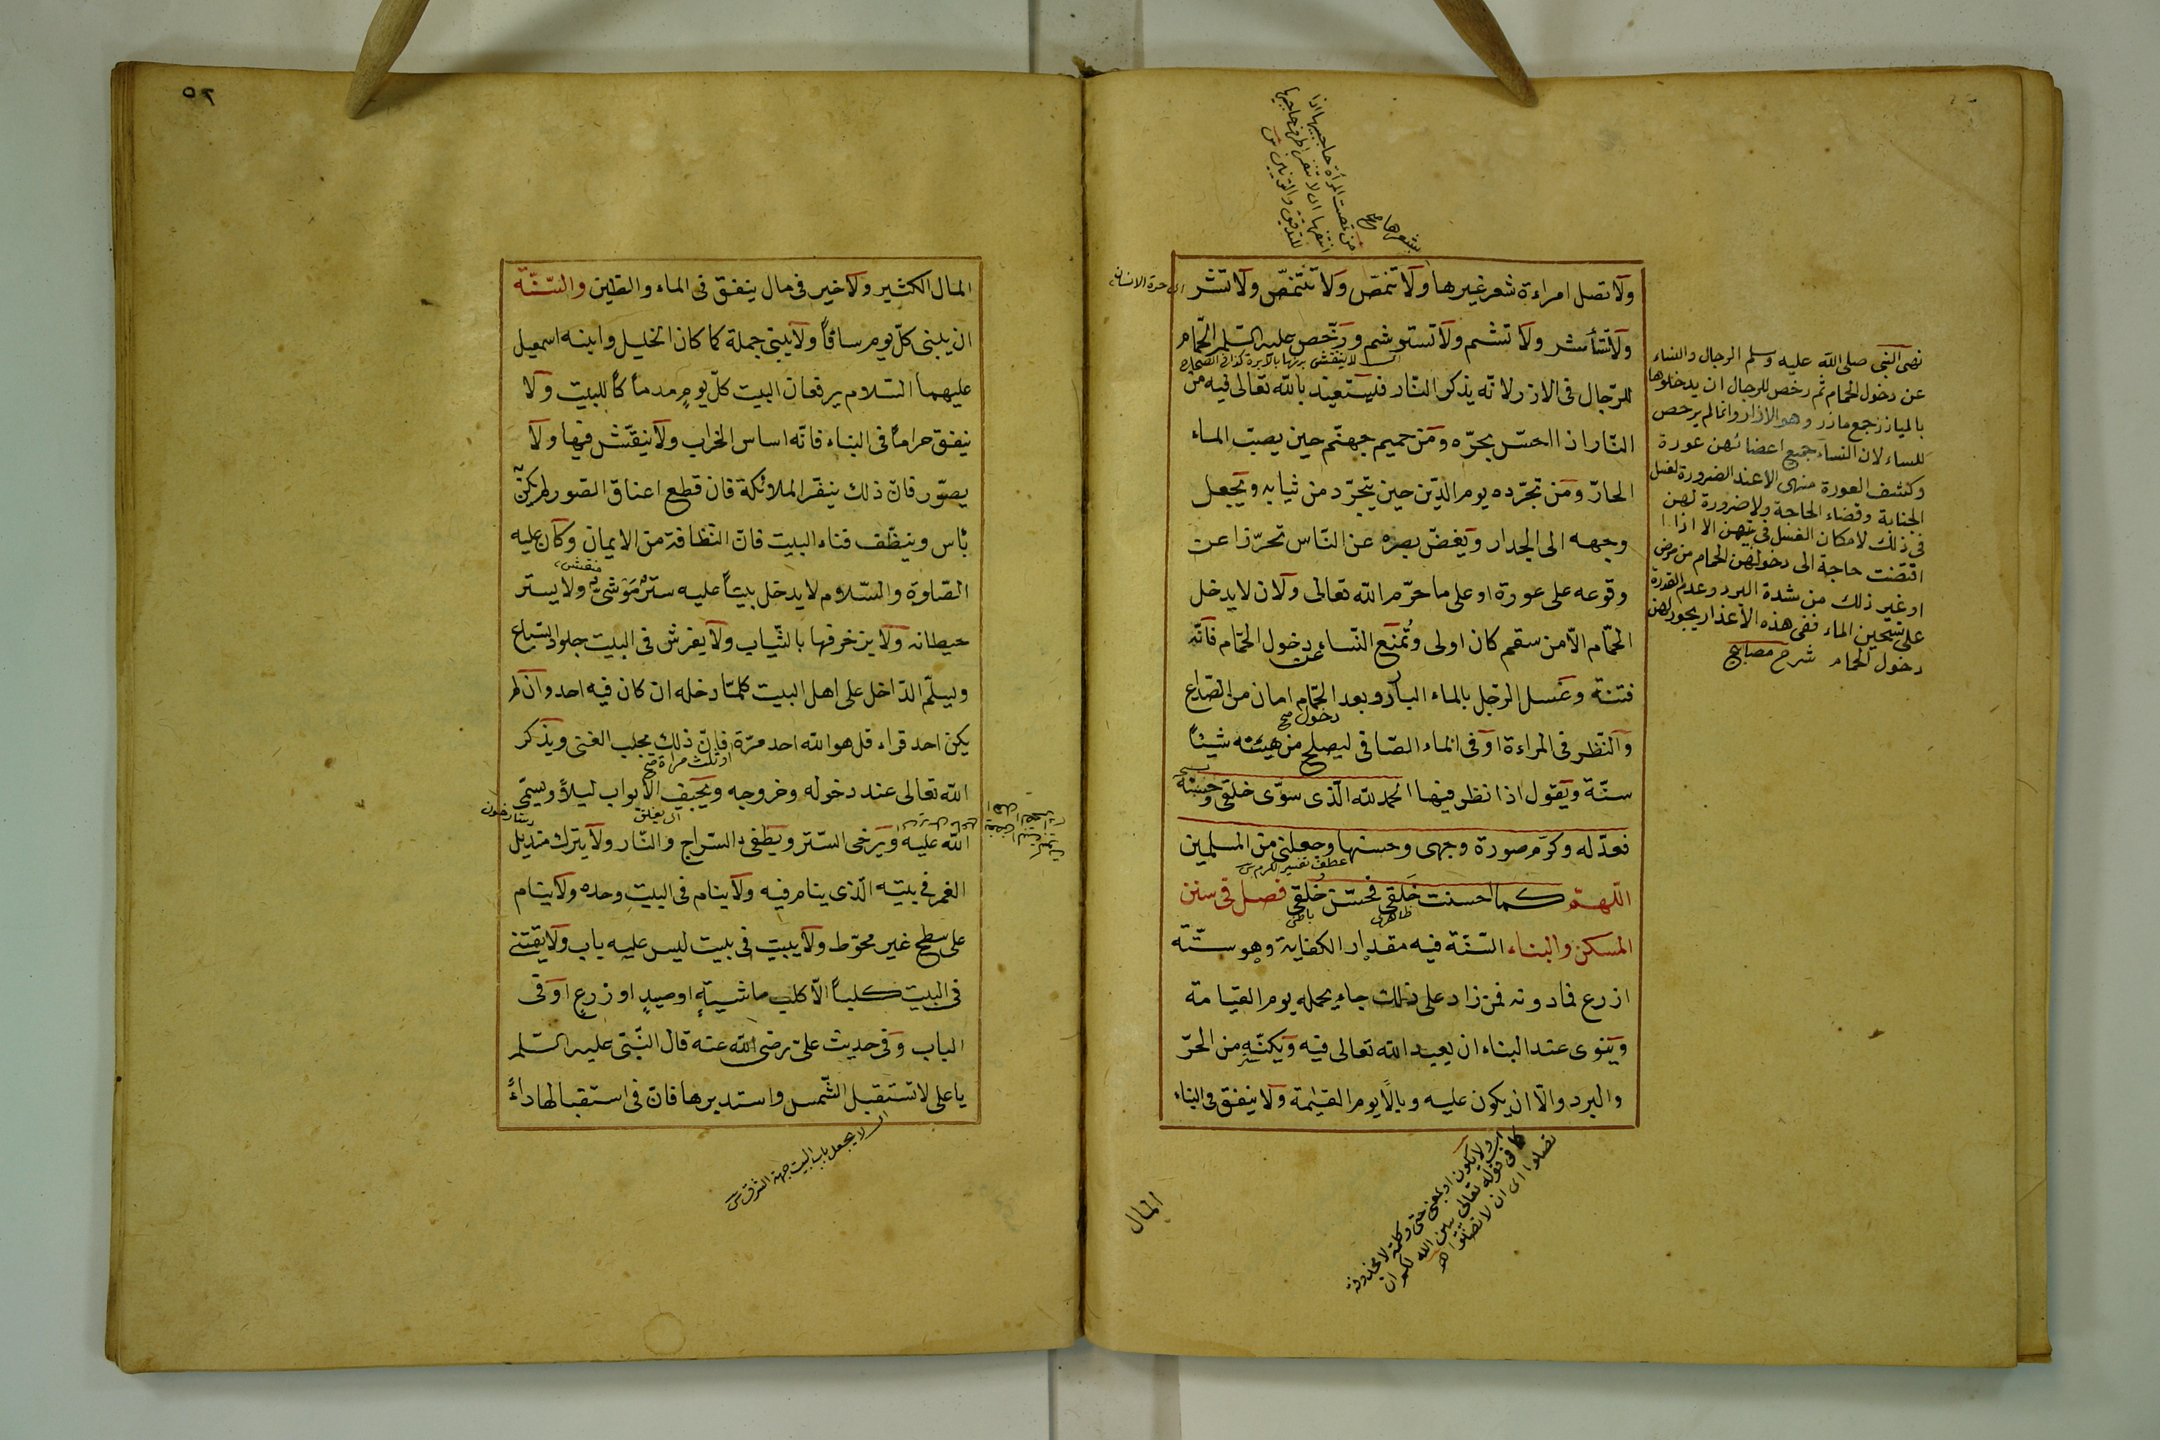 ولا تصل امراءة شعر غيرها ولا تنمص ولا تتنمص ولا تشر
ولا تستأشر ولا تشم ولا تستوشم ورخص عليه السلم الحمام
للرجال فى الازر لانه يذكر النار فليستعيذ بالله تعالى فيه من
النار اذا احس بحره ومن حميم جهنم حين يصب الماء
الحار ومن تجرده يوم الدين حين يتجرد من ثيابه ويجعل
وجهه الى الجدار ويغض بصره عن الناس تحرزا عن
وقوعه على عورة او على ما حرم الله تعالى ولان لا يدخل
الحمام الا من سقم كان اولى وتمنع النساء عن دخول الحمام فانه
فتنة وغسل الرجل بالماء البارد بعد الحمام امان من الصداع
والنظر فى المراءة او فى الماء الصافى ليصلح من هيئته شيئا
سنة ويقول اذا نظر فيها الحمد لله الذى سوى خلقى وحسنه
فعدله وكرم صورة وجهى وحسنها وجعلنى من المسلمين
اللهم كما احسنت خلقى فحسن خلقى فصل فى سنن
المسكن والبناء السنة فيه مقدار الكفاية وهو ستة
ازرع فما دونه فمن زاد على ذلك جاء يحمله يوم القيامة
وينوى عند البناء ان يعبد الله تعالى فيه ويكنه من الحر
والبرد والا ان يكون عليه وبالا يوم القيمة ولا ينفق فى البناء
المال
نهى النبى صلى الله عليه وسلم الرجال والنساء
عن دخول الحمام ثم رخص للرجال ان يدخلوها
بالميازر جمع مازر وهو الازار وانما لم يرخص
للنساء لان النساء جميع اعضائهن عورة
وكشف العورة منهى الا عند الضرورة لغسل
الجنابة وقضاء الحاجة ولا ضرورة لهن
فى ذلك لامكان الغسل فى بيتهن الا اذا
اقتضت حاجة الى دخولهن الحمام من مرض
او غير ذلك من شدة البرد وعدم القدرة
على تسخين الماء ففى هذه الاعذار يجوز لهن
دخول الحمام شرح مصابيح
دخول صح
عطف تفسير لكرم
ظاهرى
باطنى
كما فى قوله تعالى يبين الله لكم ان
تضلوا اى ان لا تضلوا
٥٢
المال الكثير ولا خير فى مال ينفق فى الماء والطين والسنة
ان يبنى كل يوم سافا ولا يبنى جملة كما كان الخليل وابنه اسمعيل
عليهما السلام يرفعان البيت كل يوم مدماكا للبيت ولا
ينفق حراما فى البناء فانه اساس الخراب ولا ينقش فيها ولا
يصور فان ذلك ينفر الملائكة فان قطع اعناق الصور لم يكن
بأس وينظف فناء البيت فان النظافة من الايمان وكان عليه
الصلوة والسلام لا يدخل بيتا عليه ستر موشى ولا يستر
حيطانه ولا يزخرفها بالثياب ولا يفرش فى البيت جلود السباع
وليسلم الداخل على اهل البيت كلما دخله ان كان فيه احد وان لم
يكن احد قراء قل هو الله احد مرة فان ذلك يجلب الغنى ويذكر
الله تعالى عند دخوله وخروجه ويجيف الابواب ليلا ويسمى
الله عليه ويرخى الستر ويطفى السراج والنار ولا يترك منديل
الغمر فى بيته الذى ينام فيه ولا ينام فى البيت وحده ولا ينام
على سطح غير محوط ولا يبيت فى بيت ليس عليه باب ولا يقتنى
فى البيت كلبا الا كلب ماشية او صيد او زرع او فى
الباب وفى حديث على رضى الله عنه قال النبى عليه السلم
يا على لا تستقبل الشمس واستدبرها فان فى استقبالها داء
منقش
او ثلث مرات صح
اى يغلق
اى لا يجعل باب البيت جهة الشرق